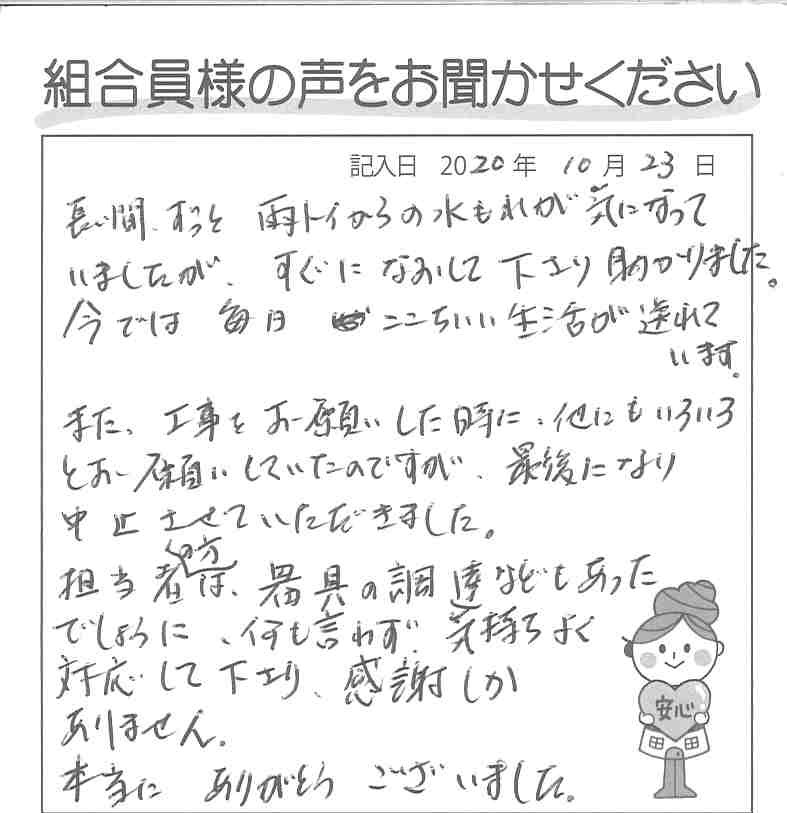 組合員様の声をお聞かせください
記入日 2020年 10月 23日
長い間、ずっと 雨トイからの水もれが気になって
いましたが、すぐになおして下さり助かりました。
今では 毎日 ここちいい生活が送れて
います。
また、工事をお願いした時に、他にもいろいろ
とお願いしていたのですが、最後になり
中止させていただきました。
担当者の方は、器具の調達などもあった
でしょうに、何も言わず、気持ちよく
対応して下さり、感謝しか
ありません。
安心
本当に ありがとう ございました。